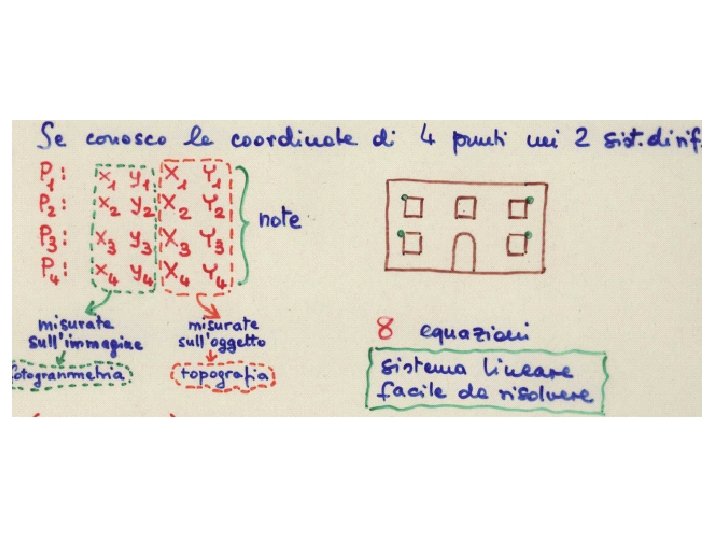 Se conosco le coordinate di 4 punti nei 2 sist. di rif.
P1: x1 y1 X1 Y1
P2: x2 y2 X2 Y2
P3: x3 y3 X3 Y3
P4: x4 y4 X4 Y4
note
misurate
sull'immagine
fotogrammetria
misurate
sull'oggetto
topografia
8 equazioni
sistema lineare
facile da risolvere